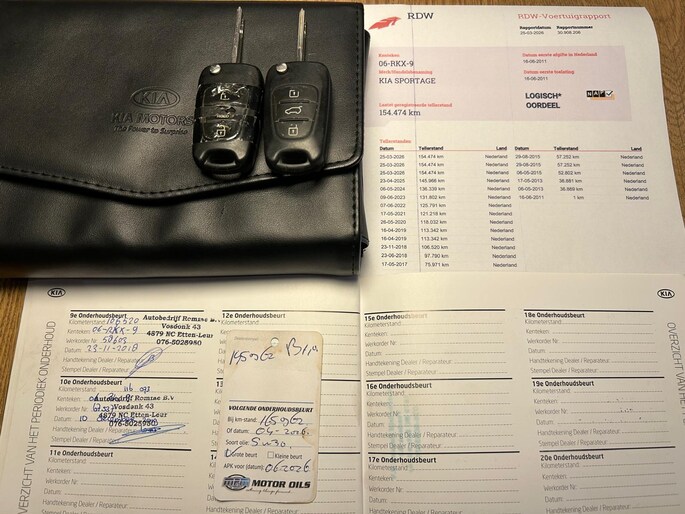 KIA
KIA MOTORS
The Power to Surprise
RDW
RDW-Voertuigrapport
Rapportdatum
Rapportnummer
25-03-2026
30.908.208
Kenteken
06-RKX-9
Merk/Handelsbenaming
KIA SPORTAGE
Datum eerste afgifte in Nederland
16-06-2011
Datum eerste toelating
16-06-2011
Laatst geregistreerde tellerstand
154.474 km
LOGISCH*
OORDEEL
NAP
Tellerstanden
Datum Tellerstand Land Datum Tellerstand Land
25-03-2026 154.474 km Nederland 29-08-2015 57.252 km Nederland
25-03-2026 154.474 km Nederland 29-08-2015 57.252 km Nederland
25-03-2026 154.474 km Nederland 06-05-2015 52.802 km Nederland
23-04-2025 145.966 km Nederland 17-05-2013 36.881 km Nederland
06-05-2024 136.339 km Nederland 06-05-2013 36.669 km Nederland
09-06-2023 131.802 km Nederland 16-06-2011 1 km Nederland
07-06-2022 125.791 km Nederland
17-05-2021 121.218 km Nederland
26-05-2020 118.032 km Nederland
16-04-2019 113.342 km Nederland
16-04-2019 113.342 km Nederland
23-11-2018 106.520 km Nederland
23-06-2018 97.790 km Nederland
17-05-2017 75.971 km Nederland
KIA
KIA
OVERZICHT VAN HET PERIODIEK ONDERHOUD
9e Onderhoudsbeurt
Kilometerstand: 106520
Kenteken: 06-RKX-9
Werkorder Nr:
Datum: 23-11-2018
Handtekening Dealer / Reparateur:
Stempel Dealer / Reparateur
Autobedrijf Romise B.V
Vosdonk 43
4879 NC Etten-Leur
076-5028980
10e Onderhoudsbeurt
Kilometerstand:
Kenteken:
Werkorder Nr:
Datum:
Handtekening Dealer / Reparateur
Stempel Dealer / Reparateur
Autobedrijf Romise B.V
Vosdonk 43
4879 NC Etten-Leur
076-5028980
11e Onderhoudsbeurt
Kilometerstand:
Kenteken:
Werkorder Nr:
Datum:
Handtekening Dealer / Reparateur
Stempel Dealer / Reparateur
12e Onderhoudsbeurt
Kilometerstand:
VOLGENDE ONDERHOUDSBEURT
Bij km-stand: 165962
Of datum: 04-2026
Soort olie: 5w30
Grote beurt
Kleine beurt
APK voor (datum): 06.2026
MOTOR OILS
15e Onderhoudsbeurt
Kilometerstand:
Kenteken:
Werkorder Nr:
Datum:
Handtekening Dealer / Reparateur:
Stempel Dealer / Reparateur
16e Onderhoudsbeurt
Kilometerstand:
Kenteken:
Werkorder Nr:
Datum:
Handtekening Dealer / Reparateur
Stempel Dealer / Reparateur
17e Onderhoudsbeurt
Kilometerstand:
Kenteken:
Werkorder Nr:
Datum:
Handtekening Dealer / Reparateur
18e Onderhoudsbeurt
Kilometerstand:
Kenteken:
Werkorder Nr:
Datum:
Handtekening Dealer / Reparateur:
Stempel Dealer / Reparateur
19e Onderhoudsbeurt
Kilometerstand:
Kenteken:
Werkorder Nr:
Datum:
Handtekening Dealer / Reparateur
Stempel Dealer / Reparateur
20e Onderhoudsbeurt
Kilometerstand:
Kenteken:
Werkorder Nr:
Datum:
Handtekening Dealer / Reparateur
OVERZICHT VAN HET